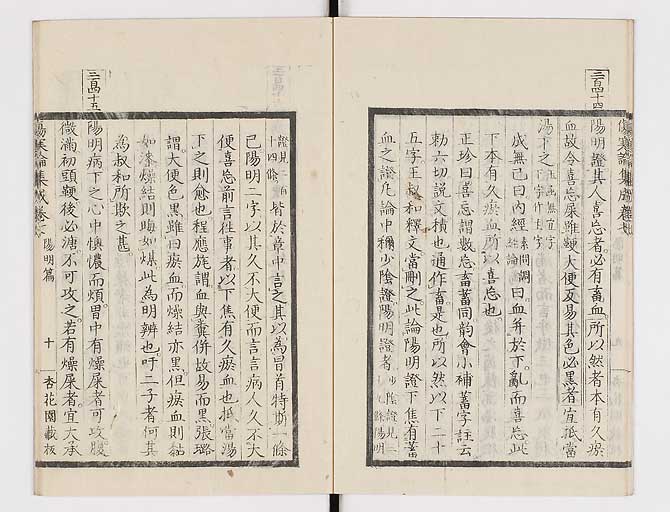 三畐十四
陽明證其人喜忘者必有畜血所以然者本有久瘀
血故令喜忘屎雖鞕大便反易其色必黑者宜抵當
湯下之
成無己曰内經曰血并於下亂而喜忘此
下本有久瘀血所以喜忘也
正珍曰喜忘謂數忘畜蓄同韵會小補蓄字註云
勅六切説文積也通作畜是也所以然以下二十
五字王叔和釋文當刪之此論陽明證下焦有蓄
血之證凡論中稱少陰證陽明證者少陰證見三
證見二百
十四條皆於章中言之其以為冒首特斯一條
已陽明二字以其久不大便而言言病人久不大
便喜忘前言徃事者以下焦有久瘀血也抵當湯
下之則愈也程應旄謂血與糞併故易而黑張璐
謂大便色黑雖曰瘀血而燥結亦黑但瘀血則黏
如漆燥結則晦如煤此為明辨也吁二子者何其
為叔和所欺之甚
三畐十五
陽明病下之心中懊憹而煩胃中有燥屎者可攻腹
微滿初頭鞕後必溏不可攻之若有燥屎者宜大承
傷寒論集成卷七 陽明篇 十 杏花園載板